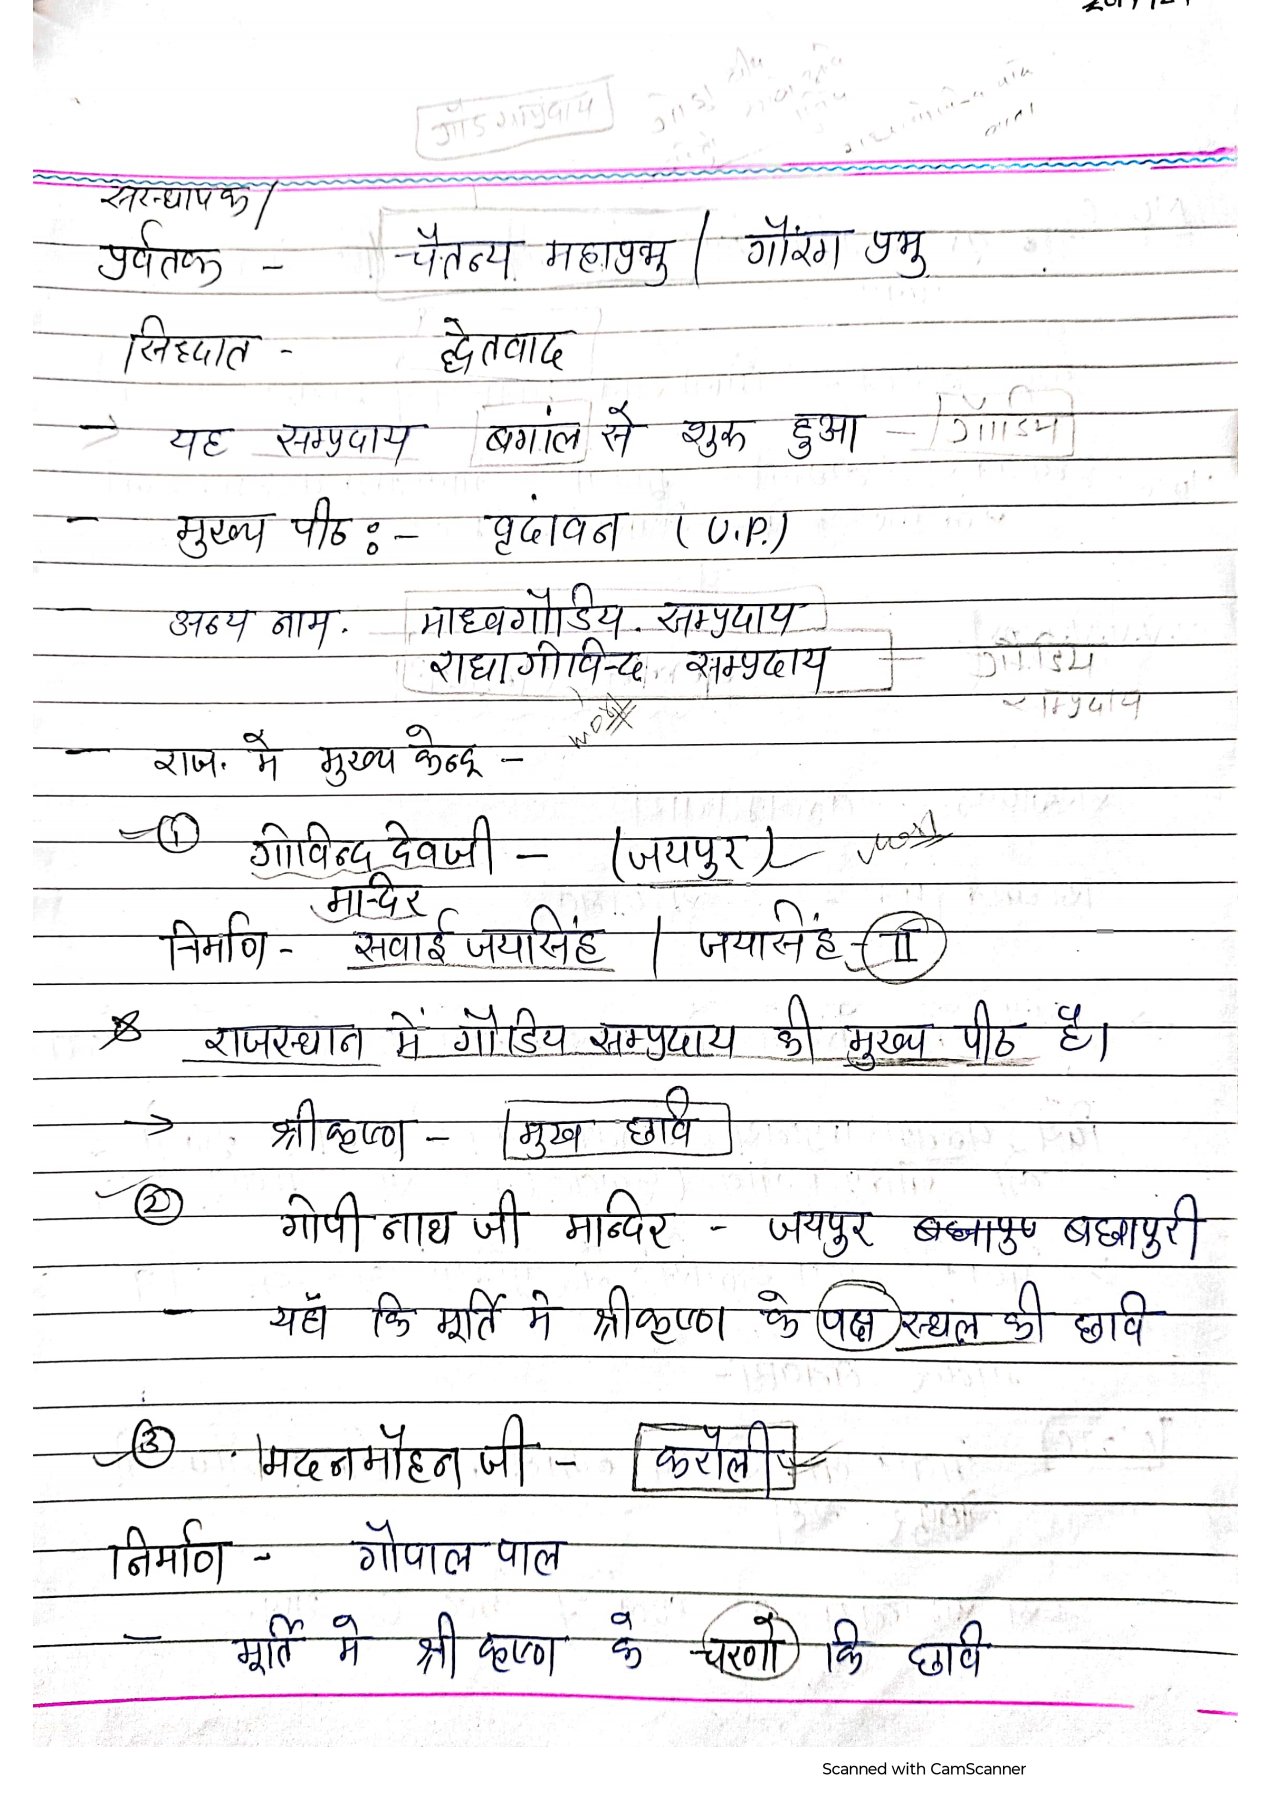 गौड सम्प्रदाय
संस्थापक/
प्रर्वतक - चैतन्य महाप्रभु / गौंरग प्रभु
सिद्दात - द्वेतवाद
→ यह सम्प्रदाय बगांल से शुरू हुआ - गौडिय
- मुख्य पीठ :- वृदांवन (U.P.)
- अन्य नाम. माध्वगौडिय. सम्प्रदाय
राधागोविन्द सम्प्रदाय - गौडिय
सम्प्रदाय
- राज. मे मुख्य केन्द्र -
① गोविन्द देवजी - (जयपुर) most
मान्दिर
निर्माण - सवाई जयसिंह / जयसिंह - II
राजस्थान में गौडिय सम्प्रदाय की मुख्य पीठ है।
→ श्रीकृष्ण - मुख छवि
② गोपी नाथ जी मन्दिर - जयपुर बह्मपुरी
- यहाँ कि मूर्ति मे श्रीकृष्ण के वक्ष स्थल की छवि
③ मदनमोहन जी - करौली
निर्माण - गौपाल पाल
- मूर्ति मे श्री कृष्ण के चरणों कि छवि
Scanned with CamScanner